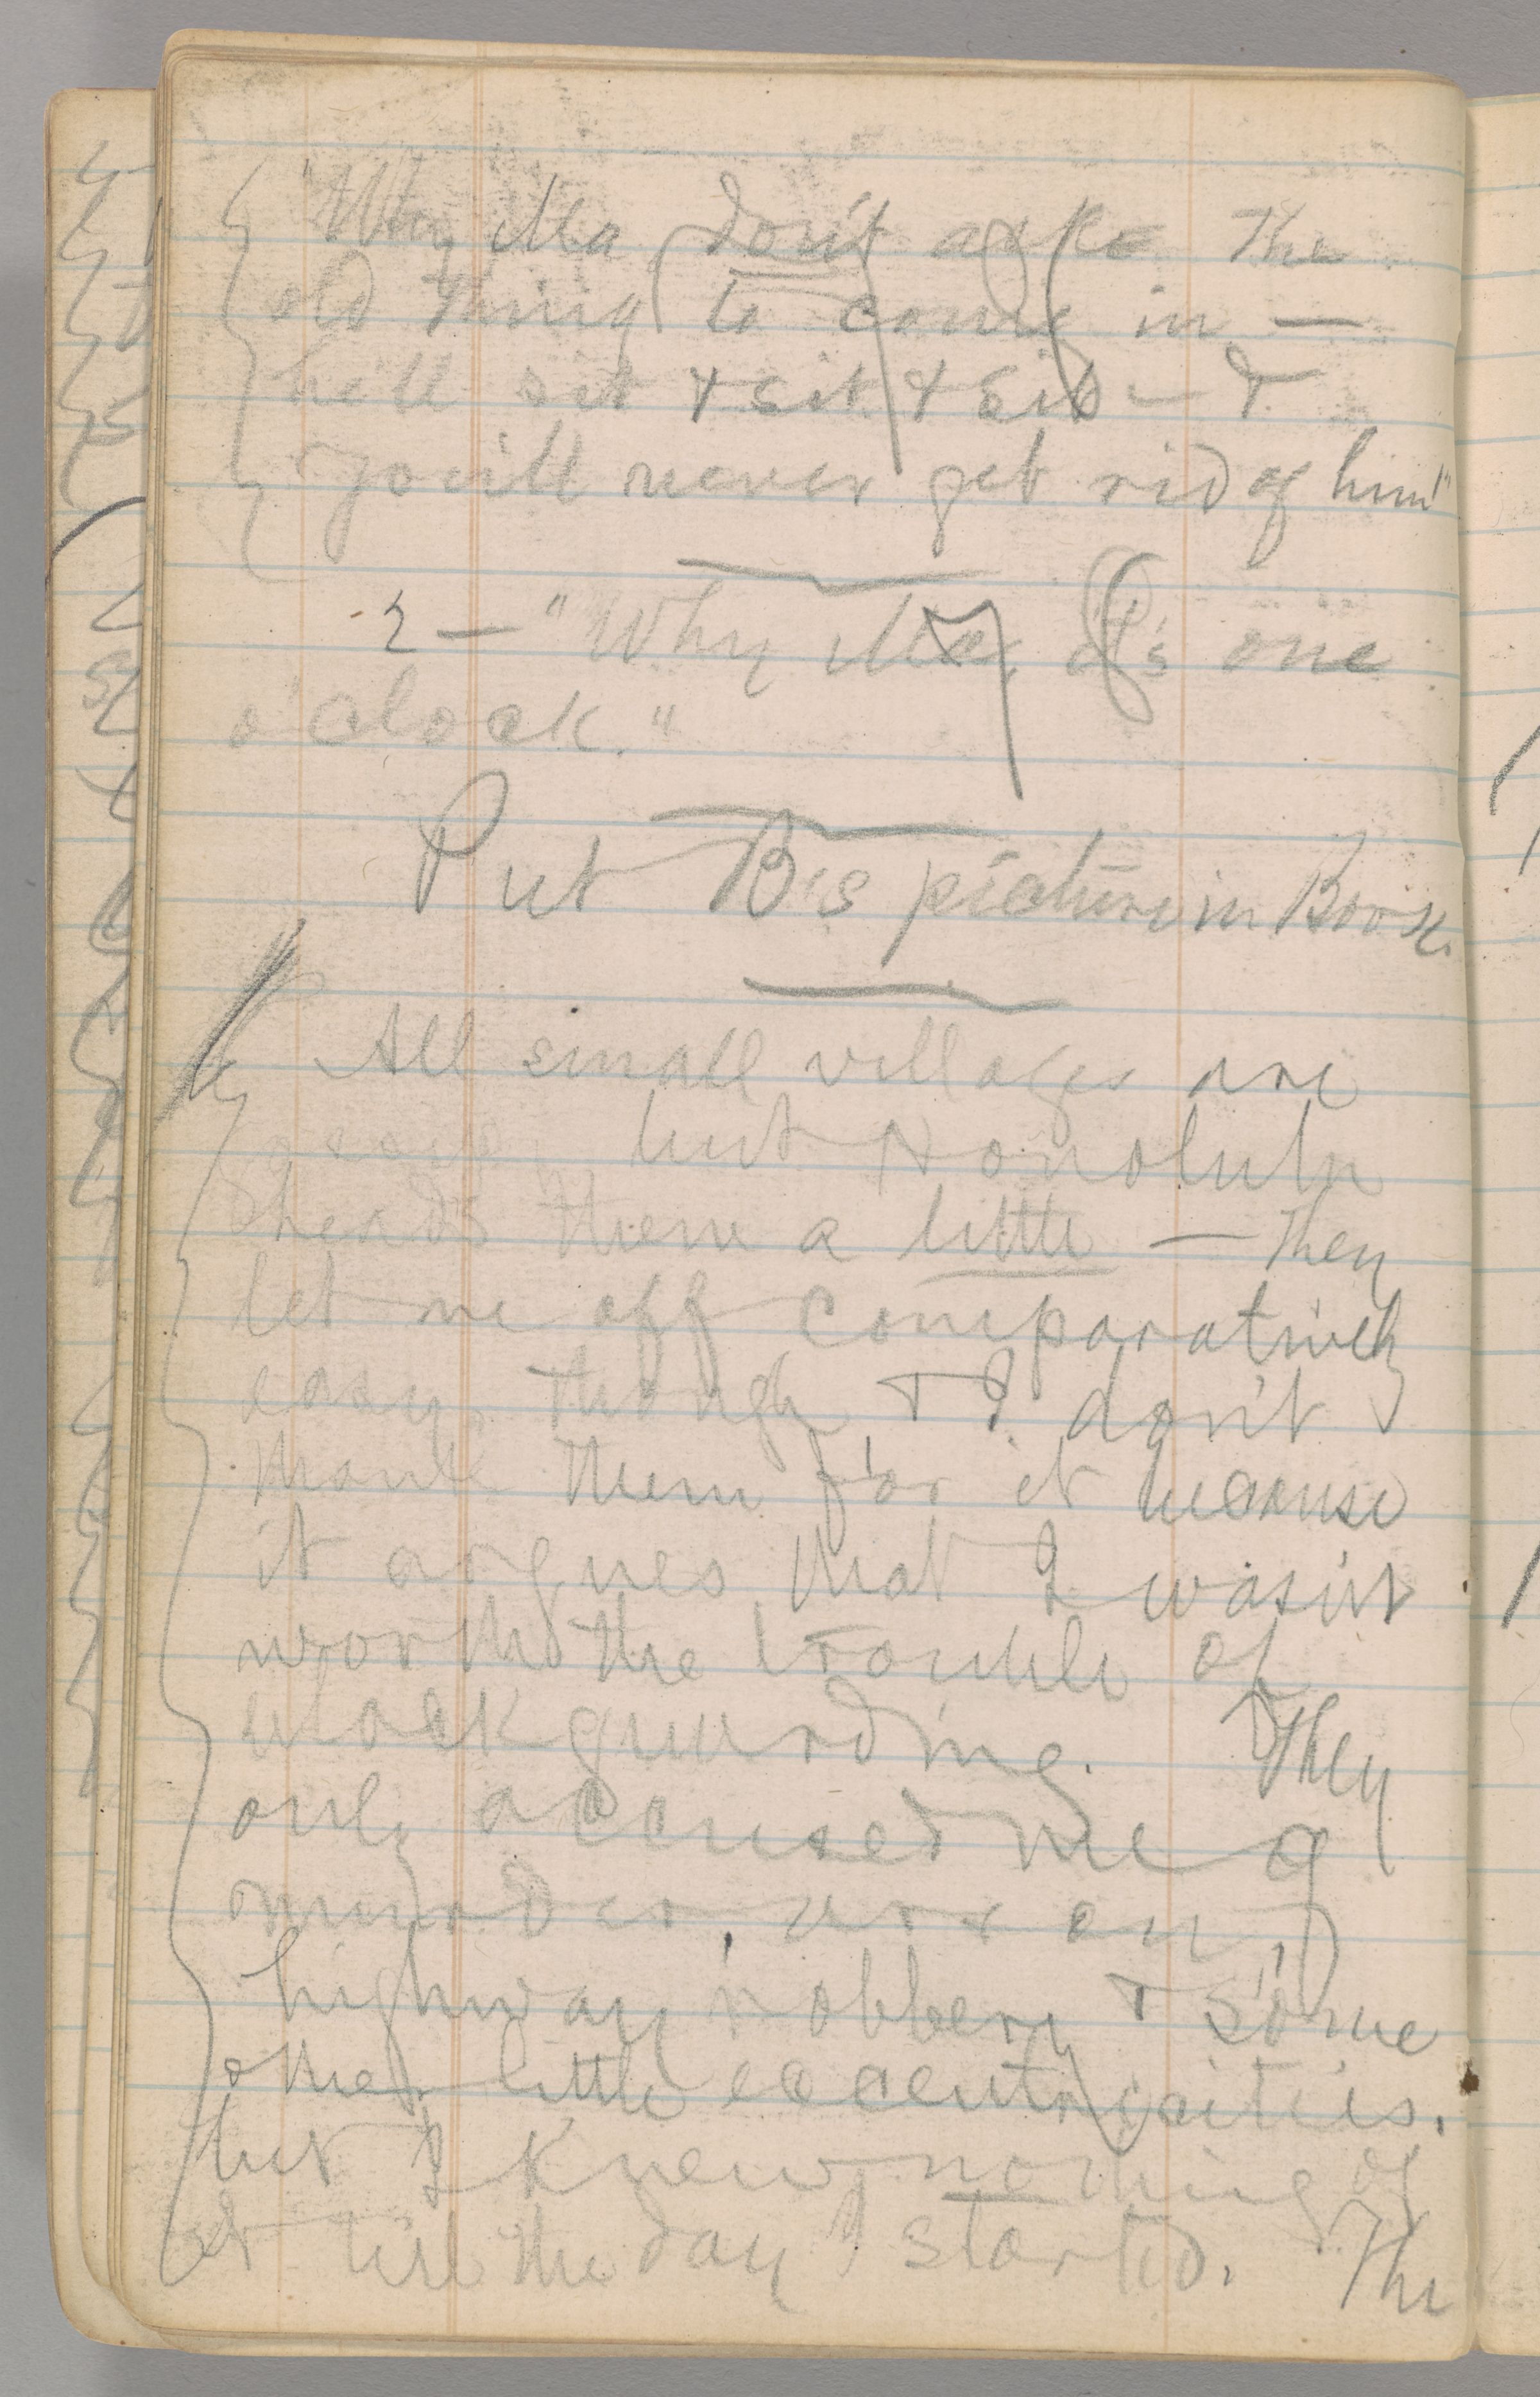 "Why Ma don't ask the
old thing to come in —
he'll sit & sit & sit — &
you'll never get rid of him"
2 — "Why Ma, it's one
o'clock."
Put B's picture in Book.
All small villages are
gossipy, but Honolulu
heads them a little — They
let me off comparatively
easy, though & I don't
thank them for it because
it argues that I wasn't
worth the trouble of
blackguarding. They
only accused me of
murder, arson,
highway robbery & some
other little eccentricities.
but I knew nothing of
it till the day I started. The